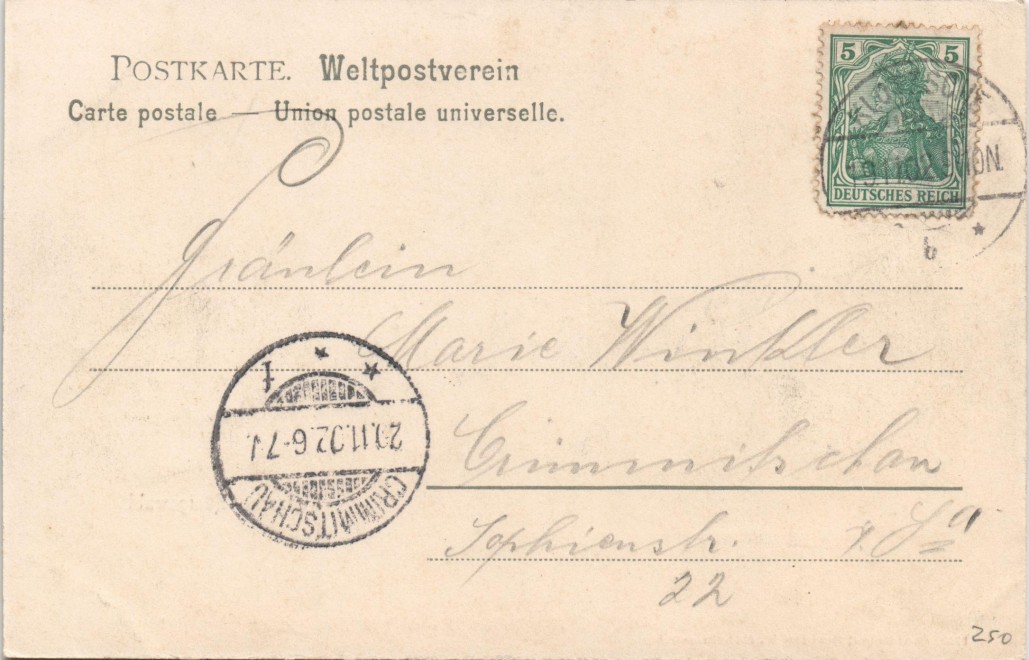 POSTKARTE. Weltpostverein
Carte postale — Union postale universelle.
5 5
DEUTSCHES REICH
b
Fräulein
Marie Winkler
Crimmitschau
Sophienstr. i. Sa
22
CRIMMITSCHAU
20.11.02.6-7
f
250